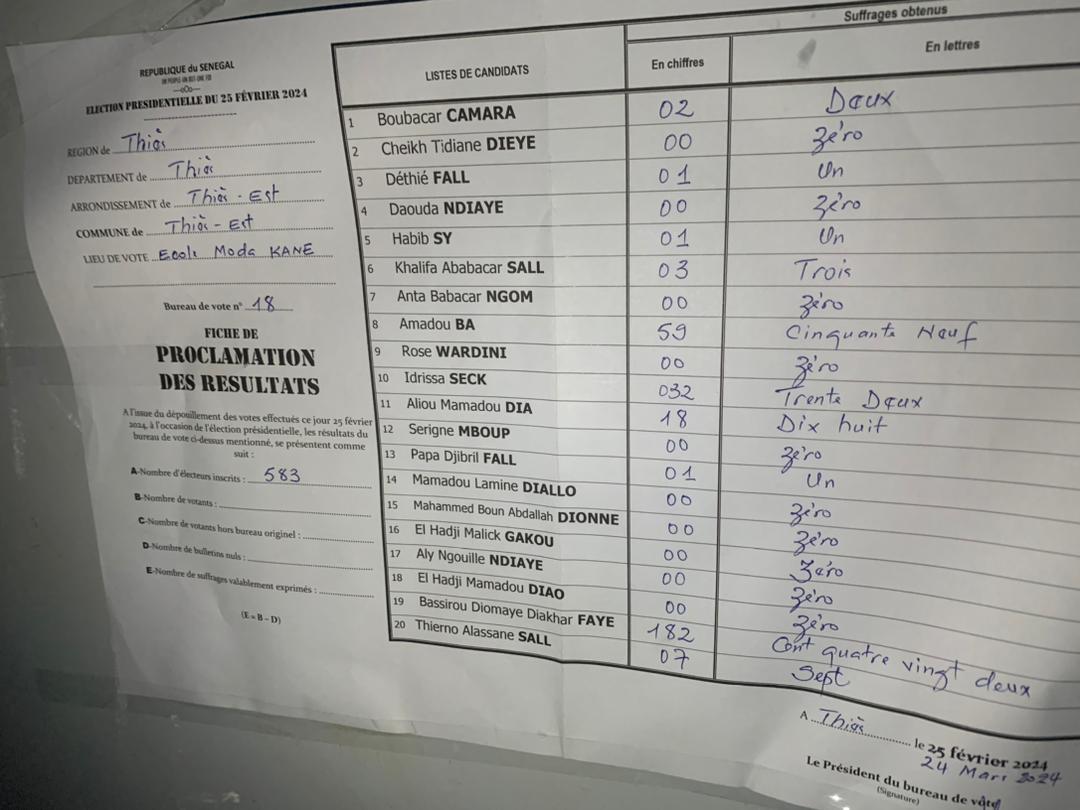 REPUBLIQUE du SENEGAL
UN PEUPLE-UN BUT-UNE FOI
---o0o---
ELECTION PRESIDENTIELLE DU 25 FÉVRIER 2024
REGION de Thiès
DEPARTEMENT de Thiès
ARRONDISSEMENT de Thiès - Est
COMMUNE de Thiès - Est
LIEU DE VOTE Ecole Moda KANE
Bureau de vote n° 18
FICHE DE
PROCLAMATION
DES RESULTATS
A l'issue du dépouillement des votes effectués ce jour 25 février
2024, à l'occasion de l'élection présidentielle, les résultats du
bureau de vote ci-dessus mentionné, se présentent comme
suit :
A-Nombre d'électeurs inscrits : 583
B-Nombre de votants :
C-Nombre de votants hors bureau originel :
D-Nombre de bulletins nuls :
E-Nombre de suffrages valablement exprimés :
(E = B - D)
Suffrages obtenus
LISTES DE CANDIDATS En chiffres En lettres
1 Boubacar CAMARA 02 Deux
2 Cheikh Tidiane DIEYE 00 Zéro
3 Déthié FALL 01 Un
4 Daouda NDIAYE 00 Zéro
5 Habib SY 01 Un
6 Khalifa Ababacar SALL 03 Trois
7 Anta Babacar NGOM 00 Zéro
8 Amadou BA 59 Cinquante Neuf
9 Rose WARDINI 00 Zéro
10 Idrissa SECK 032 Trente Deux
11 Aliou Mamadou DIA 18 Dix huit
12 Serigne MBOUP 00 Zéro
13 Papa Djibril FALL 01 Un
14 Mamadou Lamine DIALLO 00 Zéro
15 Mahammed Boun Abdallah DIONNE 00 Zéro
16 El Hadji Malick GAKOU 00 Zéro
17 Aly Ngouille NDIAYE 00 Zéro
18 El Hadji Mamadou DIAO 00 Zéro
19 Bassirou Diomaye Diakhar FAYE 182 Cent quatre vingt deux
20 Thierno Alassane SALL 07 Sept
A Thiès le 25 février 2024
24 Mars 2024
Le Président du bureau de vote
(Signature)